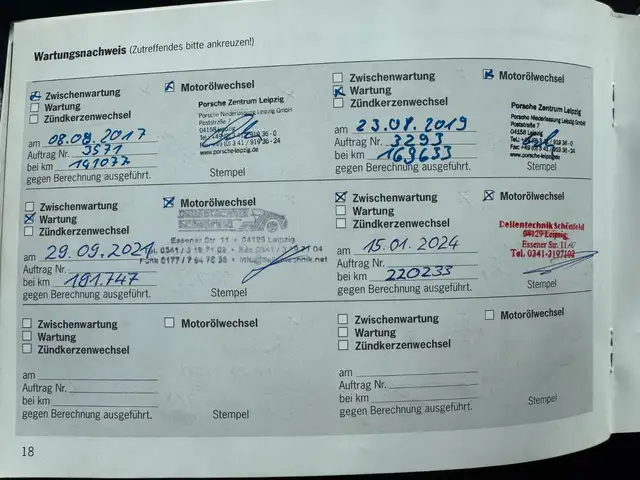 Wartungsnachweis (Zutreffendes bitte ankreuzen!)
Zwischenwartung
Wartung
Zündkerzenwechsel
Motorölwechsel
Porsche Zentrum Leipzig
Porsche Niederlassung Leipzig GmbH
Poststraße 7
04158 Leipzig
www.porsche-leipzig.de
am 08.08.2017
Auftrag Nr. 3571
bei km 141077
gegen Berechnung ausgeführt.
Stempel
Zwischenwartung
Wartung
Zündkerzenwechsel
Motorölwechsel
Porsche Zentrum Leipzig
Porsche Niederlassung Leipzig GmbH
Poststraße 7
04158 Leipzig
am 23.08.2019
Auftrag Nr. 3293
bei km 169633
gegen Berechnung ausgeführt.
Stempel
Zwischenwartung
Wartung
Zündkerzenwechsel
Motorölwechsel
Essener Str. 11 • 04129 Leipzig
am 29.09.2021
Auftrag Nr.
bei km 191.747
gegen Berechnung ausgeführt.
Stempel
Zwischenwartung
Wartung
Zündkerzenwechsel
Motorölwechsel
Dellentechnik Schönfeld
04129 Leipzig
Essener Str. 11
Tel. 0341-3197102
am 15.01.2024
Auftrag Nr.
bei km 220233
gegen Berechnung ausgeführt.
Stempel
Zwischenwartung
Wartung
Zündkerzenwechsel
Motorölwechsel
am
Auftrag Nr.
bei km
gegen Berechnung ausgeführt.
Stempel
Zwischenwartung
Wartung
Zündkerzenwechsel
Motorölwechsel
am
Auftrag Nr.
bei km
gegen Berechnung ausgeführt.
Stempel
18